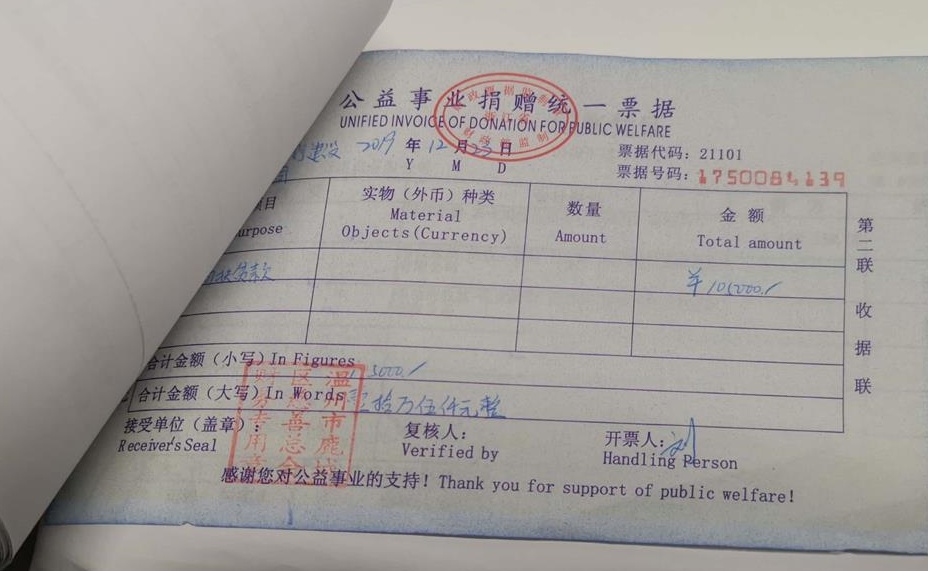 公益事业捐赠统一票据
UNIFIED INVOICE OF DONATION FOR PUBLIC WELFARE
2019 年 12 月 23 日
Y M D
票据代码：21101
票据号码：1750084139
项目 实物（外币）种类 数量 金额
urpose Material Objects(Currency) Amount Total amount
款 ￥105000
合计金额（小写）In Figures 5000
合计金额（大写）In Words 拾万伍仟元整
接受单位（盖章）： 复核人： 开票人：刘
Receiver's Seal Verified by Handling Person
感谢您对公益事业的支持！Thank you for support of public welfare!
第二联 收据联
温州市鹿城区慈善总会财务专用章